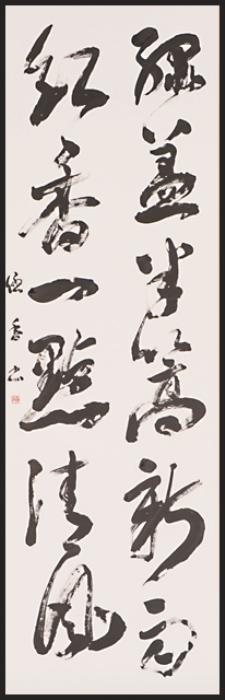 緑蓋半篙新雨
紅香一點清風
香書